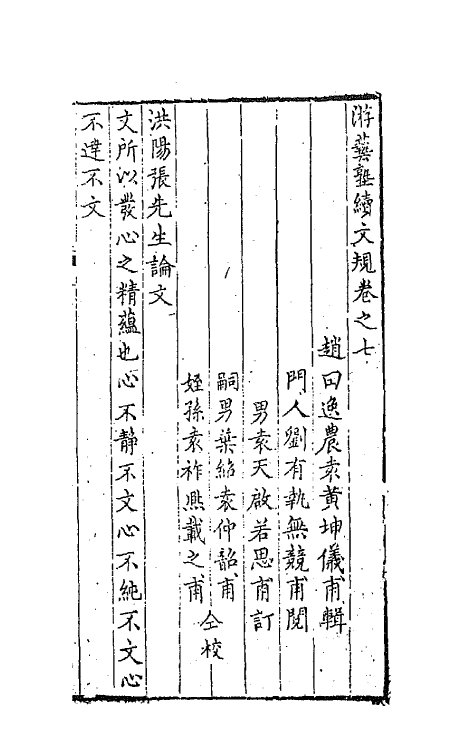 游藝塾續文規卷之七
趙田逸農袁黃坤儀甫輯
門人劉有執無競甫閱
男袁天啟若思甫訂
嗣男葉紹袁仲韶甫
姪孫袁祚熈載之甫
仝校
洪陽張先生論文
文所以發心之精蘊也心不靜不文心不純不文心
不達不文